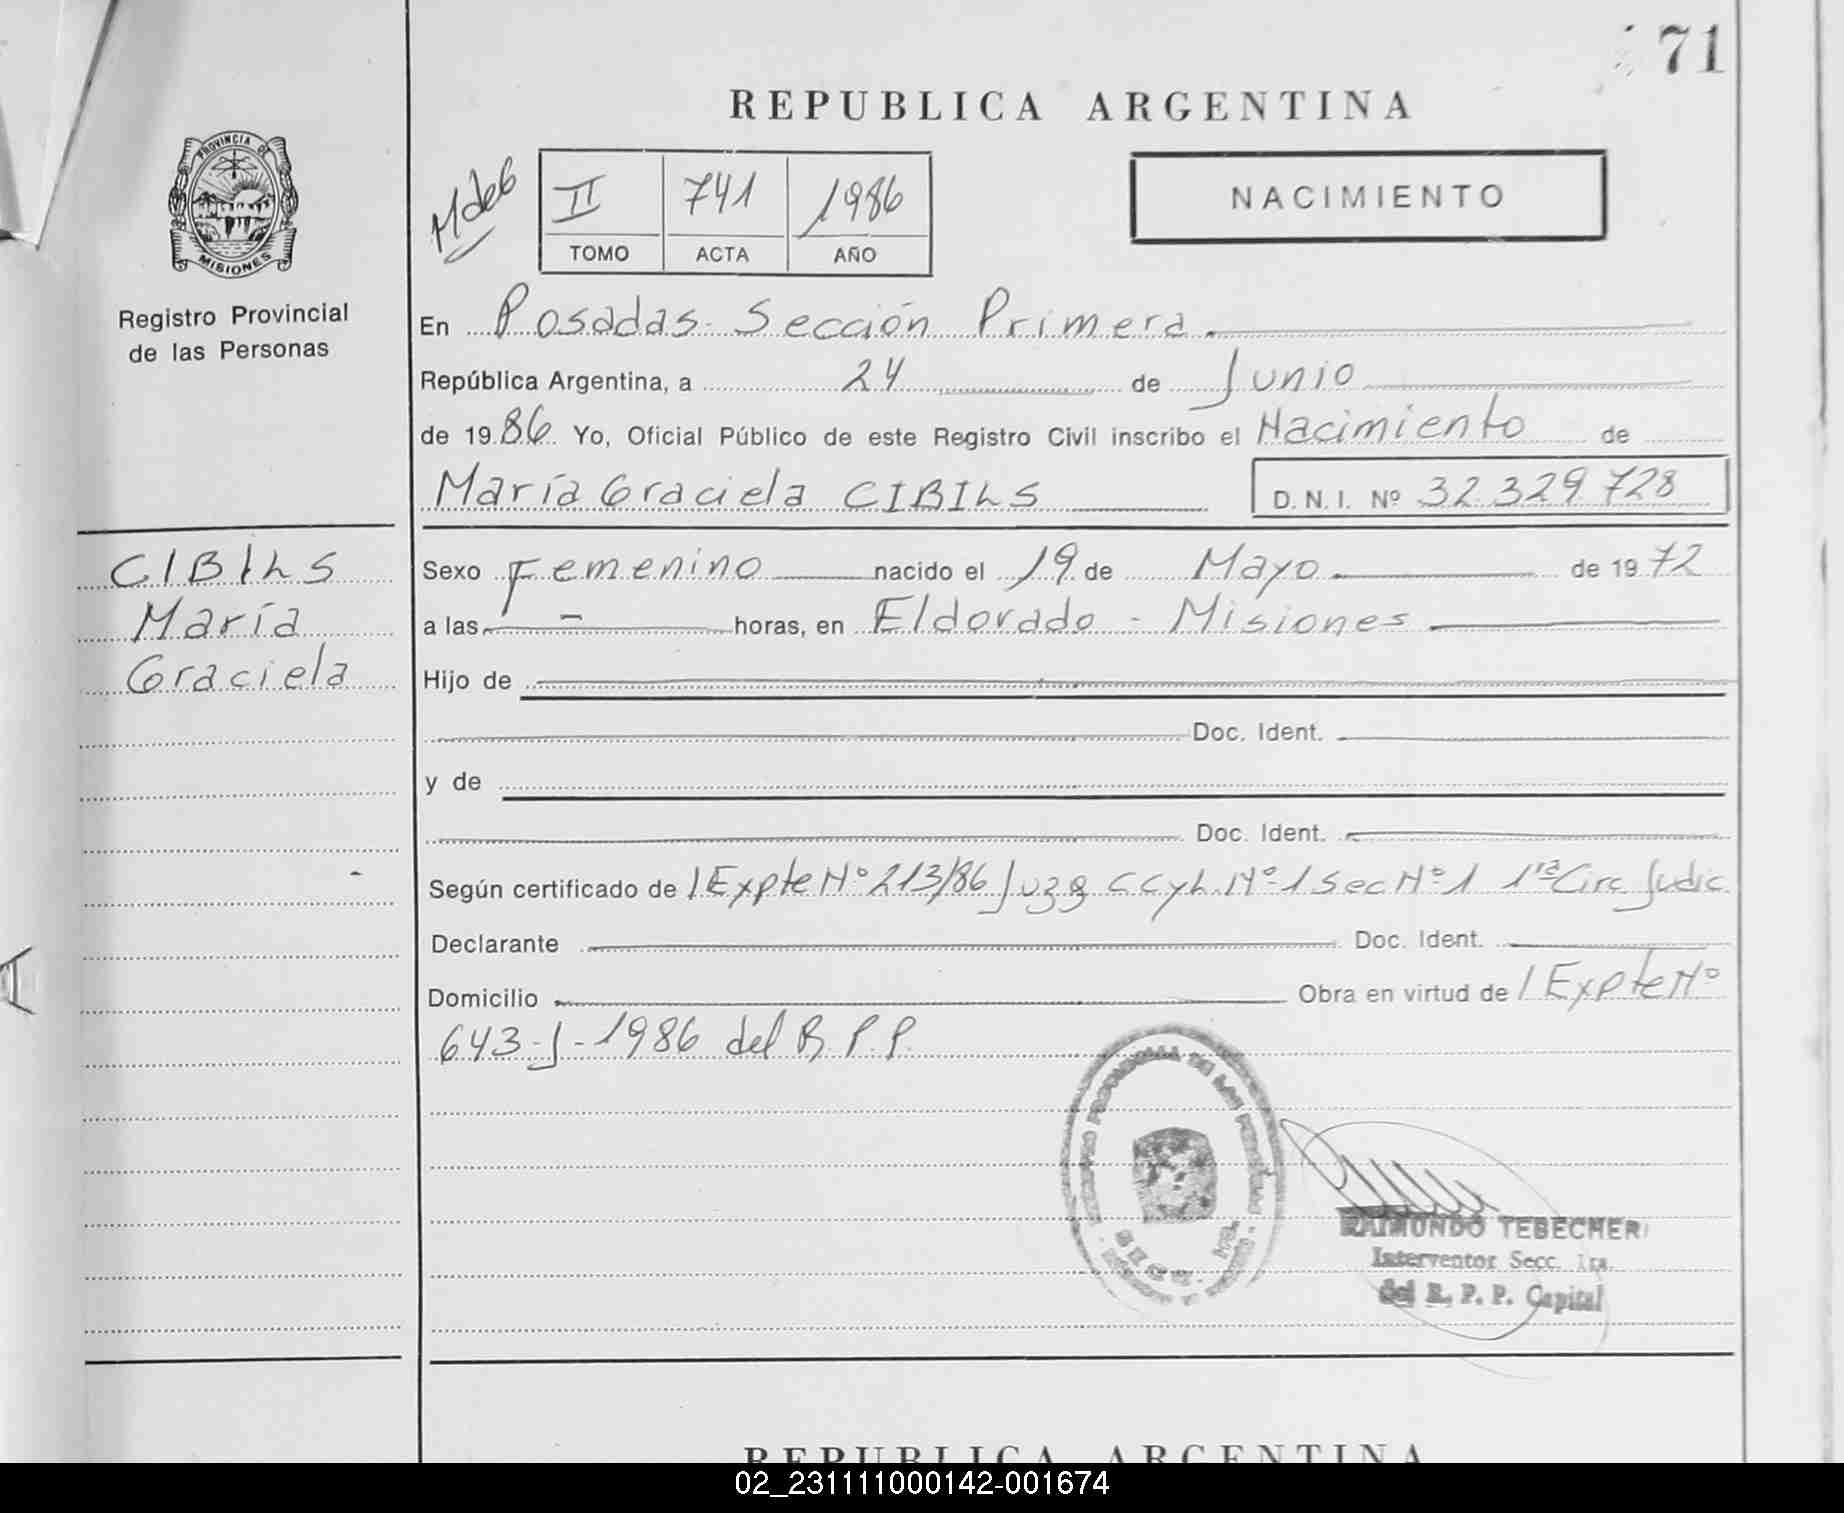 71
REPUBLICA ARGENTINA
PROVINCIA DE
MISIONES
Registro Provincial
de las Personas
MdeG
II 741 1986
TOMO ACTA AÑO
NACIMIENTO
En Posadas - Sección Primera
República Argentina, a 24 de Junio
de 1986 Yo, Oficial Público de este Registro Civil inscribo el Nacimiento de
María Graciela CIBILS D. N. I. Nº 32.329.728
CIBILS
María
Graciela
Sexo Femenino nacido el 19 de Mayo de 1972
a las - horas, en Eldorado - Misiones
Hijo de
Doc. Ident.
y de
Doc. Ident.
Según certificado de / Expte Nº 213/86 Juzg CCyL Nº 1 Sec Nº 1 1ra Circ Judic.
Declarante Doc. Ident.
Domicilio Obra en virtud de / Expte Nº
643-J-1986 del R. P. P.
RAIMUNDO TEBECHERI
Interventor Secc. 1ra.
del R. P. P. Capital
REPUBLICA ARGENTINA
02_231111000142-001674